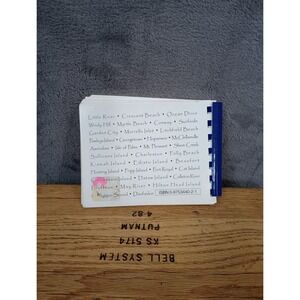 Little River • Crescent Beach • Ocean Drive
Windy Hill • Myrtle Beach • Conway • Surfside
Garden City • Murrells Inlet • Litchfield Beach
Pawleys Island • Georgetown • Hopsewee • McClellanville
Awendaw • Isle of Palms • Mt. Pleasant • Shem Creek
Sullivans Island • Charleston • Folly Beach
Kiawah Island • Edisto Island • Beaufort
Hunting Island • Fripp Island • Port Royal • Cat Island
Dataw Island • Callawassie
Bluffton • May River • Hilton Head Island
Daufuskie
ISBN
BELL SYSTEM
KS 5174
PUTNAM
4 82